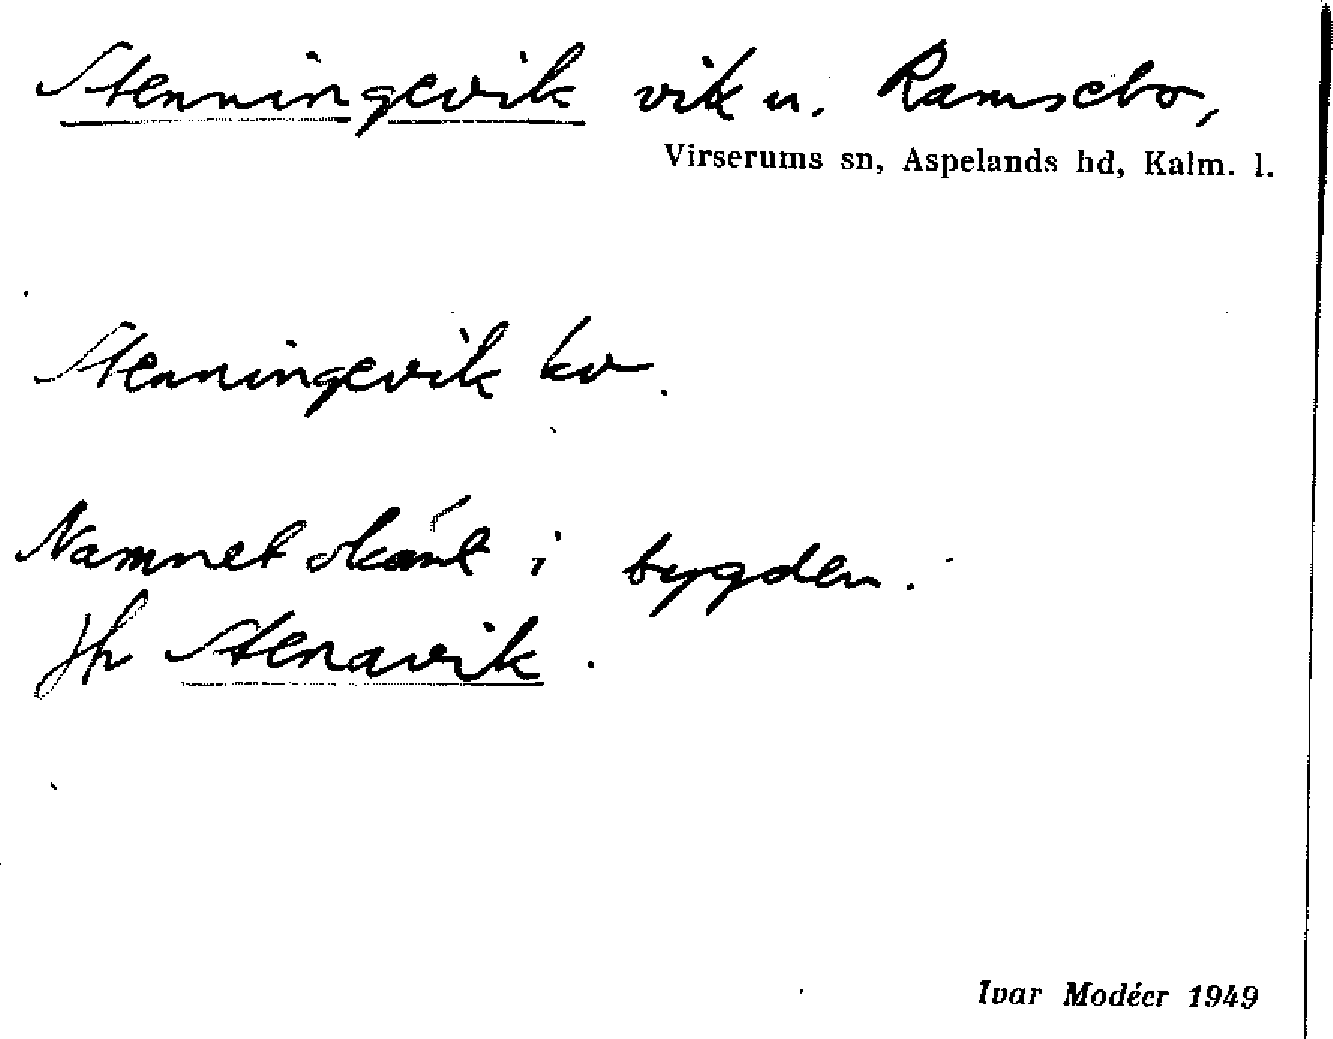 Stenningevik vik u. Ramsebo,
Virserums sn, Aspelands hd, Kalm. l.
Stenningevik kv.
Namnet okänt i bygden.
Jfr Stenavik.
Ivar Modéer 1949